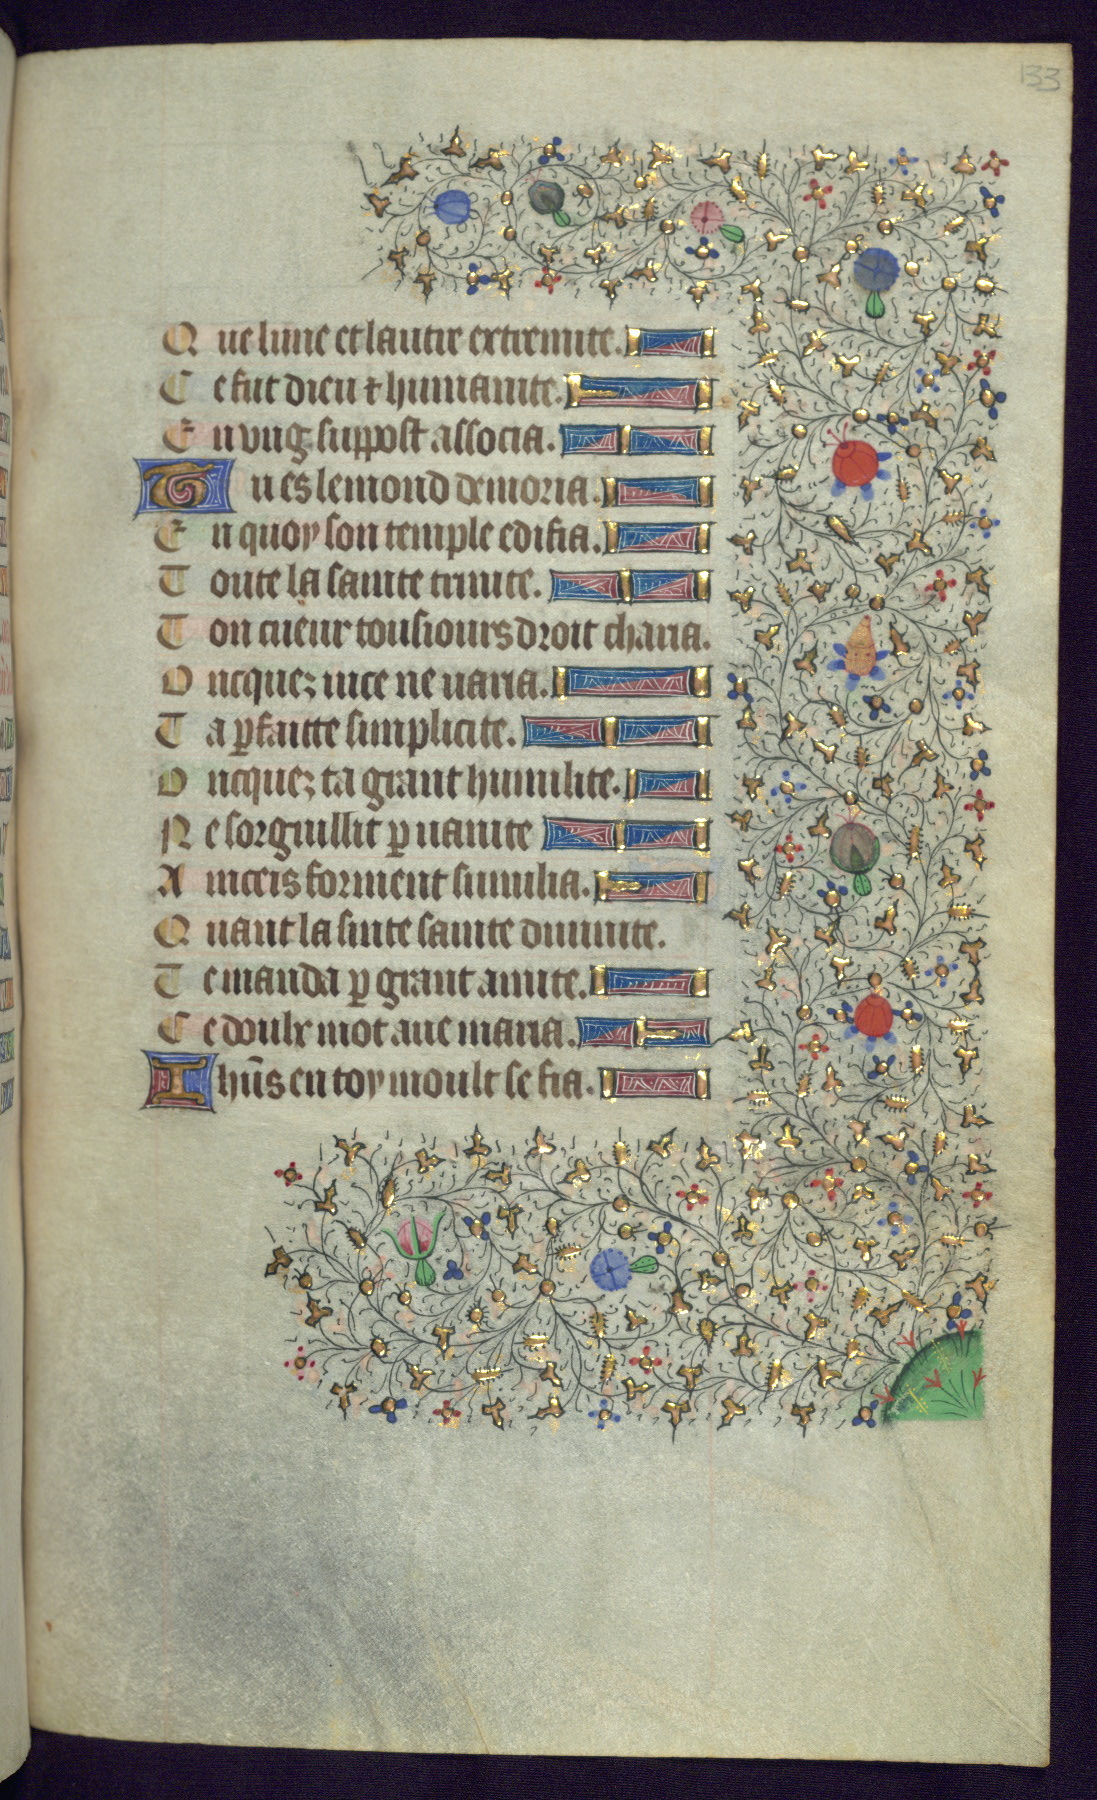 133
Que lune et lautre extremite.
Ce fut dieu ⁊ humanite.
En vng suppost associa.
Tu es le mond de moria.
En quoy son temple edifia.
Toute la sainte trinite.
Ton cueur tousiours droit charia.
Oncquez vice ne varia.
Ta ꝑfaitte simplicite.
Oncquez ta grant humilite.
Ne sorguillit ꝑ vanite
Ainceis forment humilia.
Quant la sinte sainte diuinite.
Te manda ꝑ grant amite.
Ce doulx mot aue maria.
Ihūs en toy moult se fia.